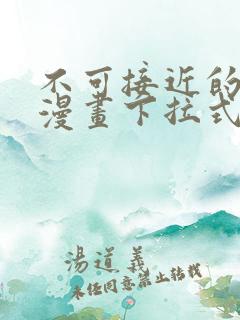 不可接近的
漫畫下拉式
湯道義
未经同意禁止转载